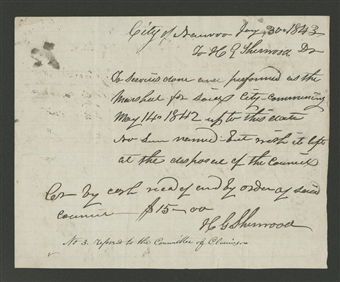 City of Nauvoo Jany 30th 1843
To H G Sherwood Dr
To Services done and preformed as the
Marshal for said City Commencing
May 14th 1842 up to this date
No Sum named but wish it left
at the disposal of the Council
Cr by cash recd of and by order of said
council $15-00
H G Sherwood
No 3. refered to the Committee of Claims